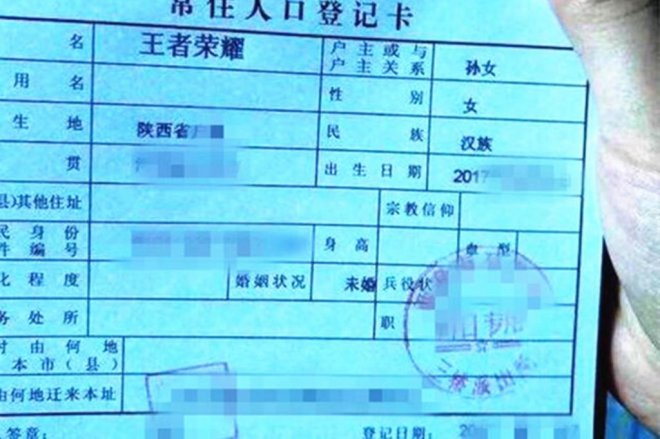 常住人口登记卡
名 王者荣耀 户主或与户主关系 孙女
用名 性别 女
生地 陕西省 民族 汉族
贯 出生日期 2017
县)其他住址 宗教信仰
民身份
件编号 身高 血型
化程度 婚姻状况 未婚 兵役状
务处所 职
时由何地
本市(县)
由何地迁来本址
签章: 登记日期: